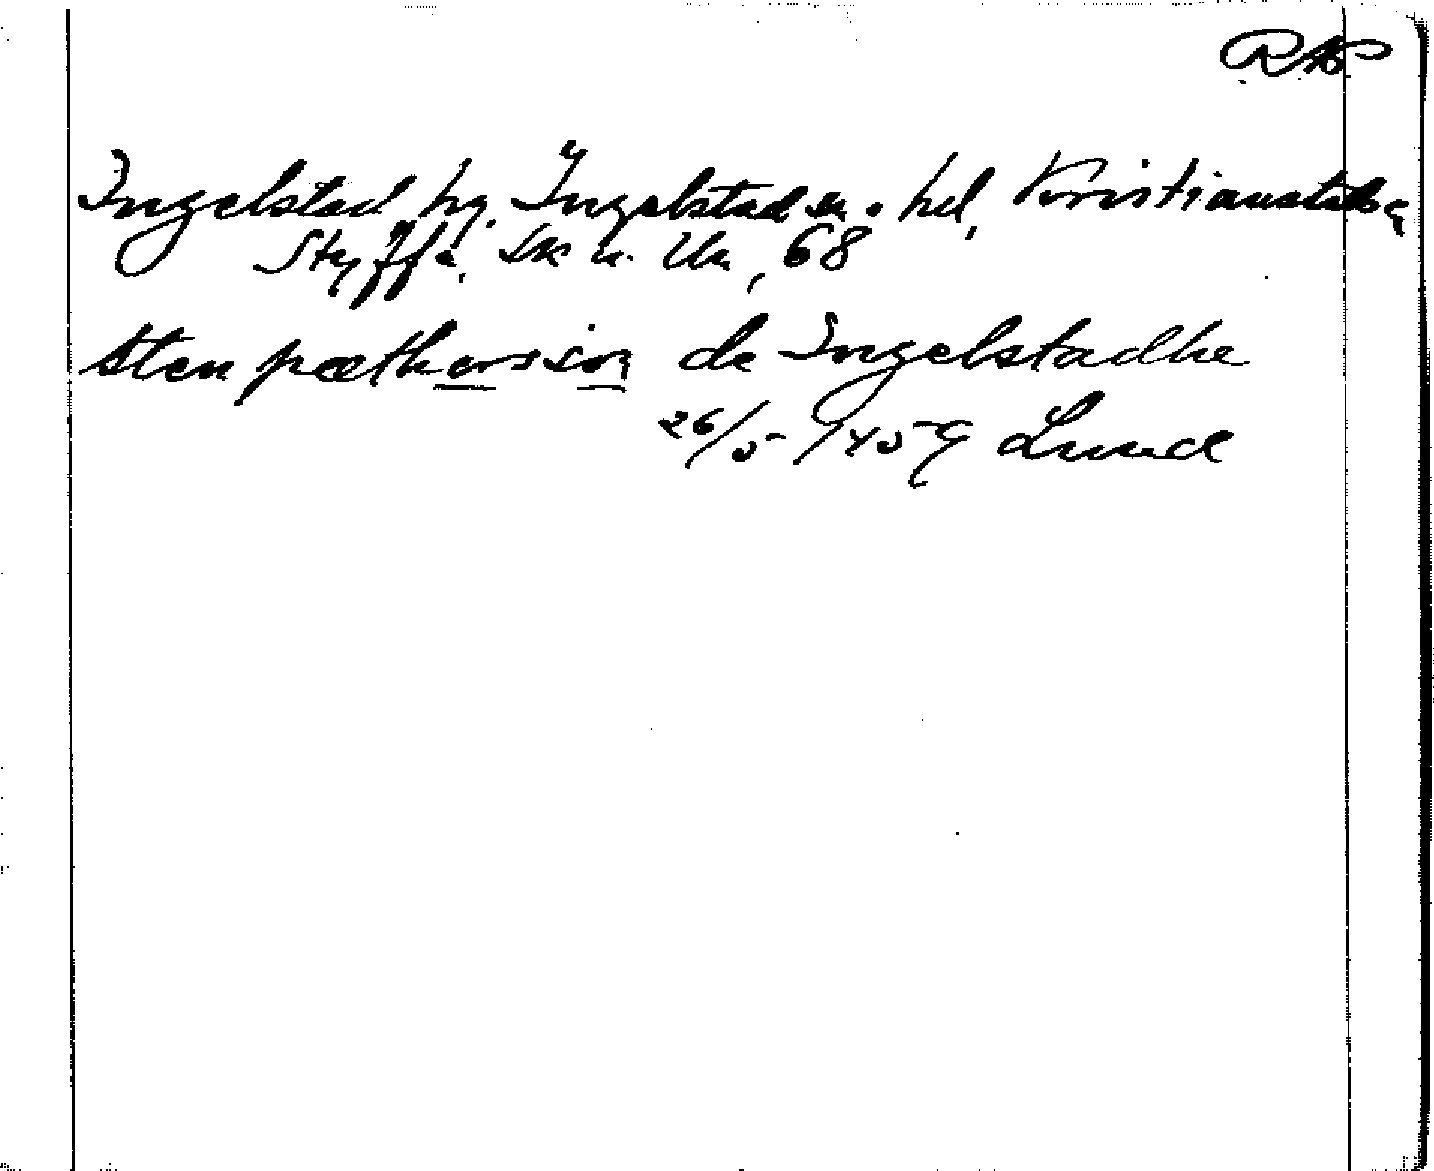 RAP
Ingelstad, hg. Ingelstad sn. o. hd, Kristianstads
Styffe, Sk u. Un, 68
Sten pætherssiøn de Ingelstadhe
26/5 1459 Lund